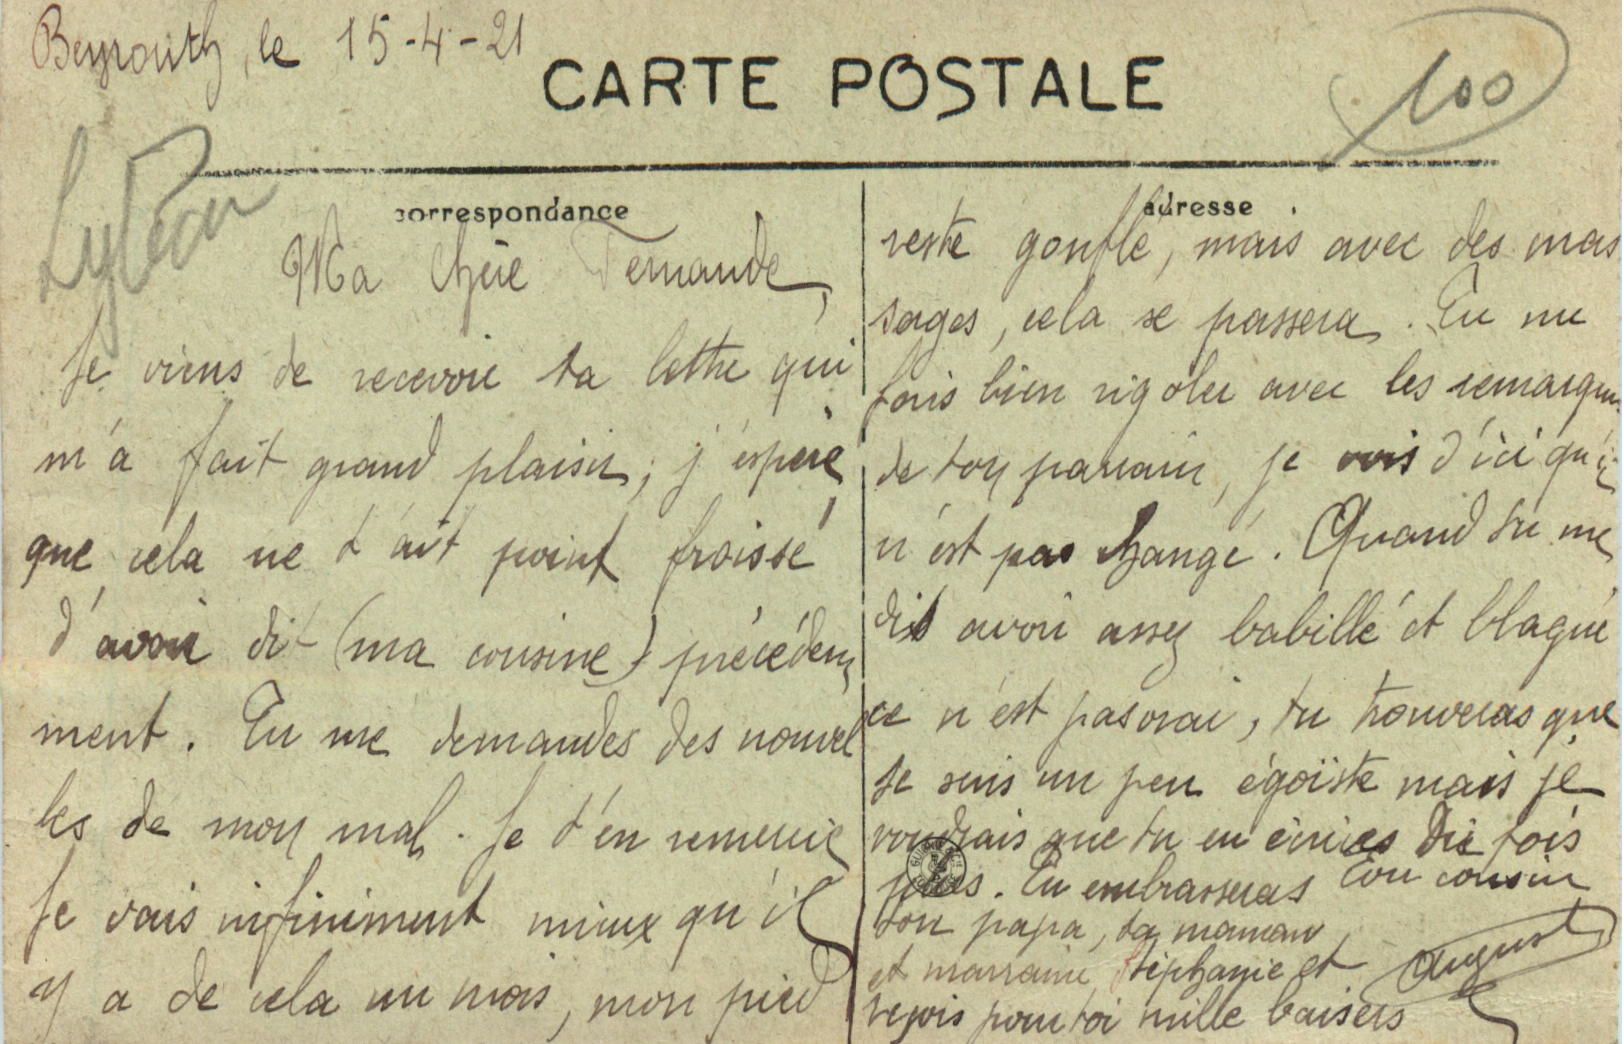 Beyrouth, le 15-4-21
CARTE POSTALE
100
correspondance
Ma Chère Fernande,
Je viens de recevoir ta lettre qui
m'a fait grand plaisir, j'espère
que cela ne t'ait point froissé
d'avoir dit (ma cousine) précédem
ment. Tu me demandes des nouvel
les de mon mal. Je t'en remercie
Je vais infiniment mieux qu'il
y a de cela un mois, mon pied
adresse
reste gonflé, mais avec des mas
sages, cela se passera. Tu me
fais bien rigoler avec les remarques
de ton parrain, je vois d'ici qu'il
n'est pas changé. Quand tu me
dis avoir assez babillé et blagué
ce n'est pas vrai, tu trouveras que
je suis un peu égoïste mais je
voudrais que tu en écrives dix fois
plus. Tu embrasseras
ton papa, ta maman
et marraine Stéphanie et
reçois pour toi mille baisers
Ton cousin
August